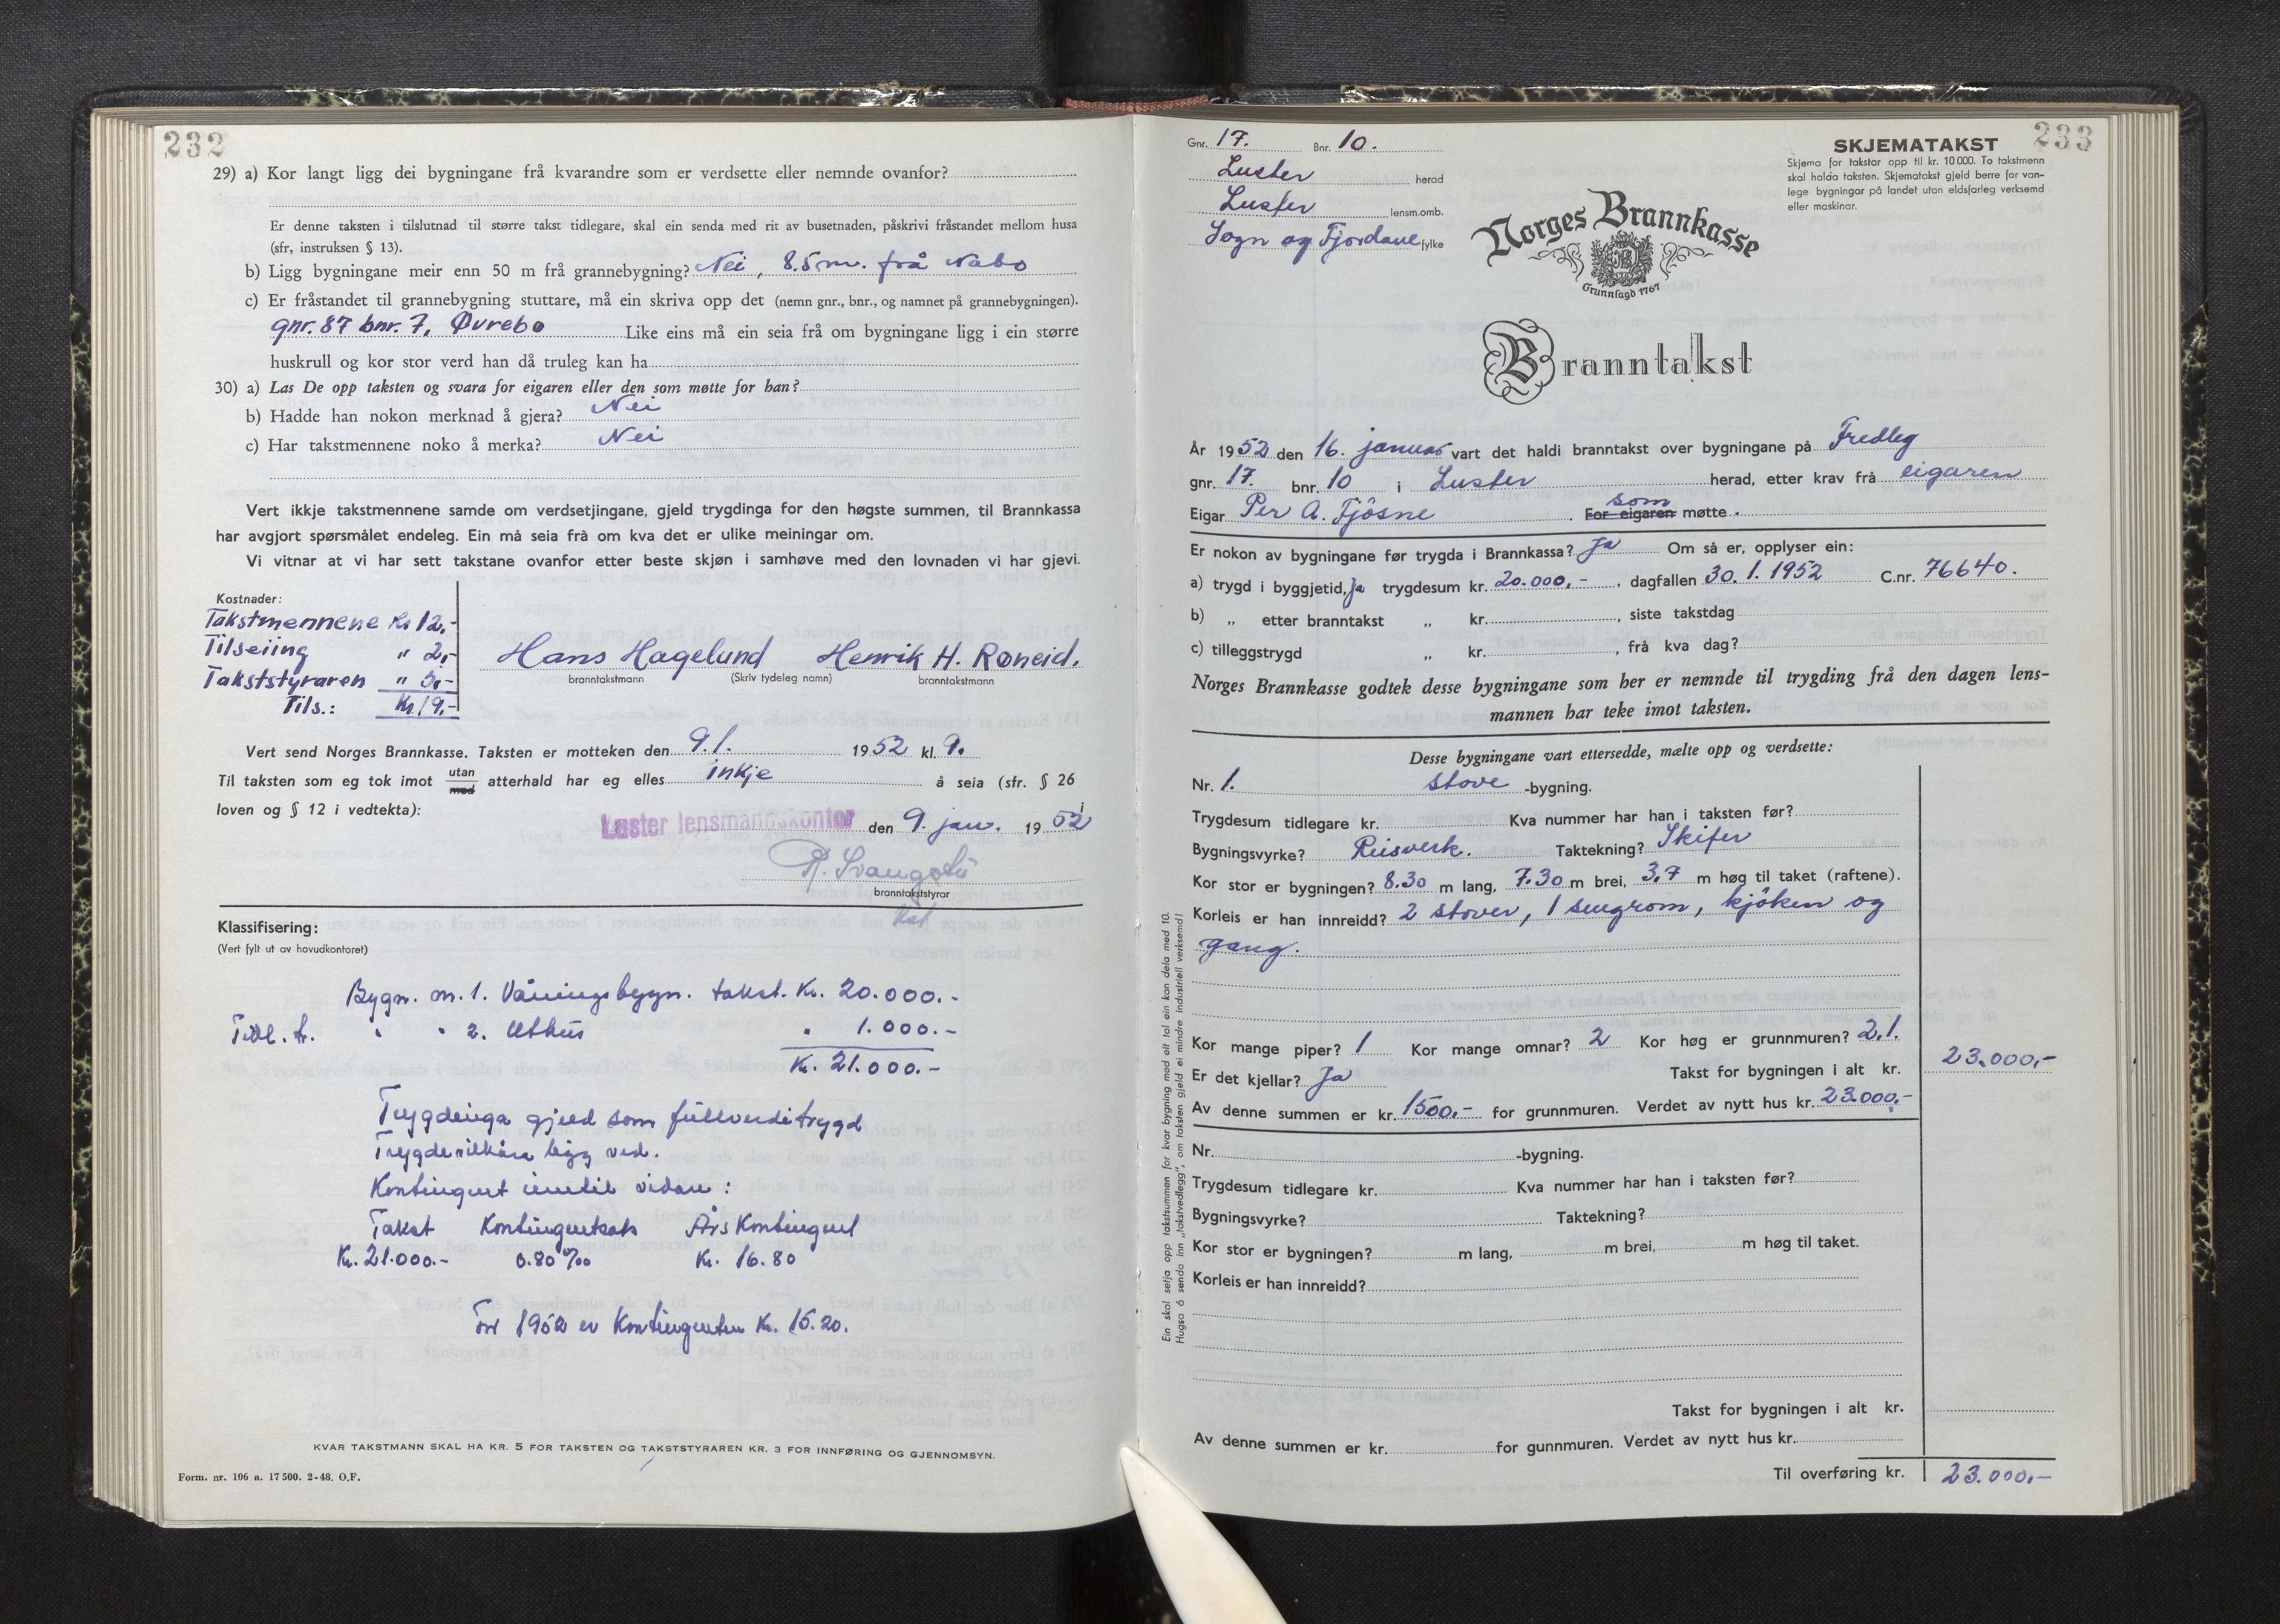 232
29) a) Kor langt ligg dei bygningane frå kvarandre som er verdsette eller nemnde ovanfor?
Er denne taksten i tilslutnad til større takst tidlegare, skal ein senda med rit av busetnaden, påskrivi fråstandet mellom husa
(sfr, instruksen § 13).
b) Ligg bygningane meir enn 50 m frå grannebygning? Nei, 8.5 m. frå Nabo
c) Er fråstandet til grannebygning stuttare, må ein skriva opp det (nemn gnr., bnr., og namnet på grannebygningen).
gnr. 87 bnr. 7, Øvrebø Like eins må ein seia frå om bygningane ligg i ein større
huskrull og kor stor verd han då truleg kan ha
30) a) Las De opp taksten og svara for eigaren eller den som møtte for han?
b) Hadde han nokon merknad å gjera? Nei
c) Har takstmennene noko å merka? Nei
Vert ikkje takstmennene samde om verdsetjingane, gjeld trygdinga for den høgste summen, til Brannkassa
har avgjort spørsmålet endeleg. Ein må seia frå om kva det er ulike meiningar om.
Vi vitnar at vi har sett takstane ovanfor etter beste skjøn i samhøve med den lovnaden vi har gjevi.
Kostnader:
Takstmennene Kr 12,-
Tilseiing " 2,-
Takststyraren " 5,-
Tils.: Kr. 19,-
Hans Hagelund Henrik H. Røneid.
branntakstmann (Skriv tydeleg namn) branntakstmann
Vert send Norges Brannkasse. Taksten er motteken den 9.1. 1952 kl. 9.
Til taksten som eg tok imot utan med atterhald har eg elles inkje å seia (sfr. § 26
loven og § 12 i vedtekta):
Luster lensmannskontor den 9. jan. 1952
branntakststyrar
Klassifisering:
(Vert fylt ut av hovudkontoret)
Bygn. nr. 1. Våningsbygn. takst. Kr. 20.000.-
Tidl. tr. " " 2. Uthus " 1.000.-
Kr. 21.000.-
Trygdinga gjeld som fullverditrygd
Trygdevilkåra ligg ved.
Kontingent inntil vidare:
Takst Kontingentsats Års Kontingent
Kr. 21.000.- 0.80 ‰ Kr. 16.80
For 1952 er Kontingenten Kr. 15.20.
KVAR TAKSTMANN SKAL HA KR. 5 FOR TAKSTEN OG TAKSTSTYRAREN KR. 3 FOR INNFØRING OG GJENNOMSYN.
Form. nr. 106 a. 17 500. 2-48. O.F.
233
Gnr. 17. Bnr. 10.
Luster herad
Luster lensm.omb.
Sogn og Fjordane fylke
SKJEMATAKST
Skjema for takstar opp til kr. 10 000. To takstmenn
skal halda taksten. Skjematakst gjeld berre for van-
lege bygningar på landet utan eldsfarleg verksemd
eller maskinar.
Norges Brannkasse
Grunnlagd 1767
Branntakst
År 1952 den 16. januar vart det haldi branntakst over bygningane på Fredleg
gnr. 17. bnr. 10 i Luster herad, etter krav frå eigaren
Eigar Per A. Fjøsne. For eigaren som møtte.
Er nokon av bygningane før trygda i Brannkassa? Ja Om så er, opplyser ein:
a) trygd i byggjetid, ja trygdesum kr. 20.000,-, dagfallen 30.1.1952 C.nr. 76640.
b) „ etter branntakst „ kr. , siste takstdag
c) tilleggstrygd „ kr. , frå kva dag?
Norges Brannkasse godtek desse bygningane som her er nemnde til trygding frå den dagen lens-
mannen har teke imot taksten.
Desse bygningane vart ettersedde, mælte opp og verdsette:
Nr. 1. stove -bygning.
Trygdesum tidlegare kr. Kva nummer har han i taksten før?
Bygningsvyrke? Reisverk. Taktekning? Skifer
Kor stor er bygningen? 8.30 m lang, 7.30 m brei, 3.7 m høg til taket (raftene).
Korleis er han innreidd? 2 stover, 1 sengrom, kjøken og
gang.
Kor mange piper? 1 Kor mange omnar? 2 Kor høg er grunnmuren? 2.1.
Er det kjellar? Ja Takst for bygningen i alt kr. 23.000,-
Av denne summen er kr. 1500,- for grunnmuren. Verdet av nytt hus kr. 23.000,-
Nr. -bygning.
Trygdesum tidlegare kr. Kva nummer har han i taksten før?
Bygningsvyrke? Taktekning?
Kor stor er bygningen? m lang, m brei, m høg til taket.
Korleis er han innreidd?
Takst for bygningen i alt kr.
Av denne summen er kr. for gunnmuren. Verdet av nytt hus kr.
Til overføring kr. 23.000,-
Ein skal setja opp takstsummen for kvar bygning med eit tal ein kan dela med 10.
Hugsa å senda inn „takstvedlegg", om taksten gjeld ei mindre industriell verksemd!